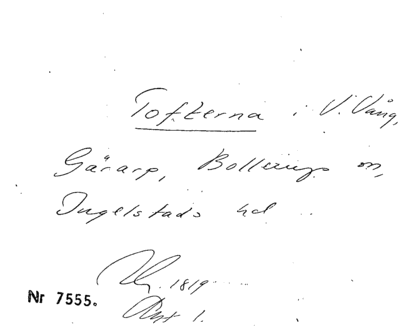 Tofterna i V. Vång,
Gärarp, Bollerups sn,
Ingelstads hd
1819
Akt 1.
Nr 7555.